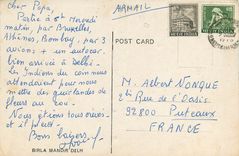 Cher Papa,
AIRMAIL
Partie à 6h Mercredi
matin, par Bruxelles,
Athènes, Bombay, par 3
avions + un autocar,
bien arrivée à Delhi.
Les Indiens du
attendaient pour nous
mettre des guirlandes de
fleurs au cou.
Nous
et
Bons baisers
BIRLA MANDIR DELHI
POST CARD
M. Albert NONQUE
2 bis Rue de l'Oasis
92800 Puteaux
FRANCE